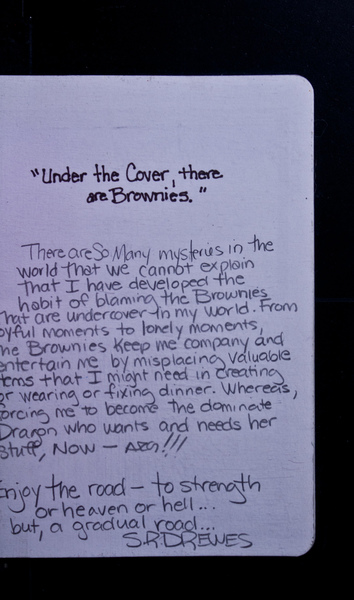 "Under the Cover, there
are Brownies."
There are So Many mysteries in the
world that we cannot explain
that I have developed the
habit of blaming the Brownies
That are undercover in my world. From
oyful moments to lonely moments,
he Brownies keep me company and
entertain me by misplacing valuable
tems that I might need in creating
or wearing or fixing dinner. Whereas,
orcing me to become the dominate
Dragon who wants and needs her
stuff, Now —
Enjoy the road — to strength
or heaven or hell...
but, a gradual road...
S.R.DREWES